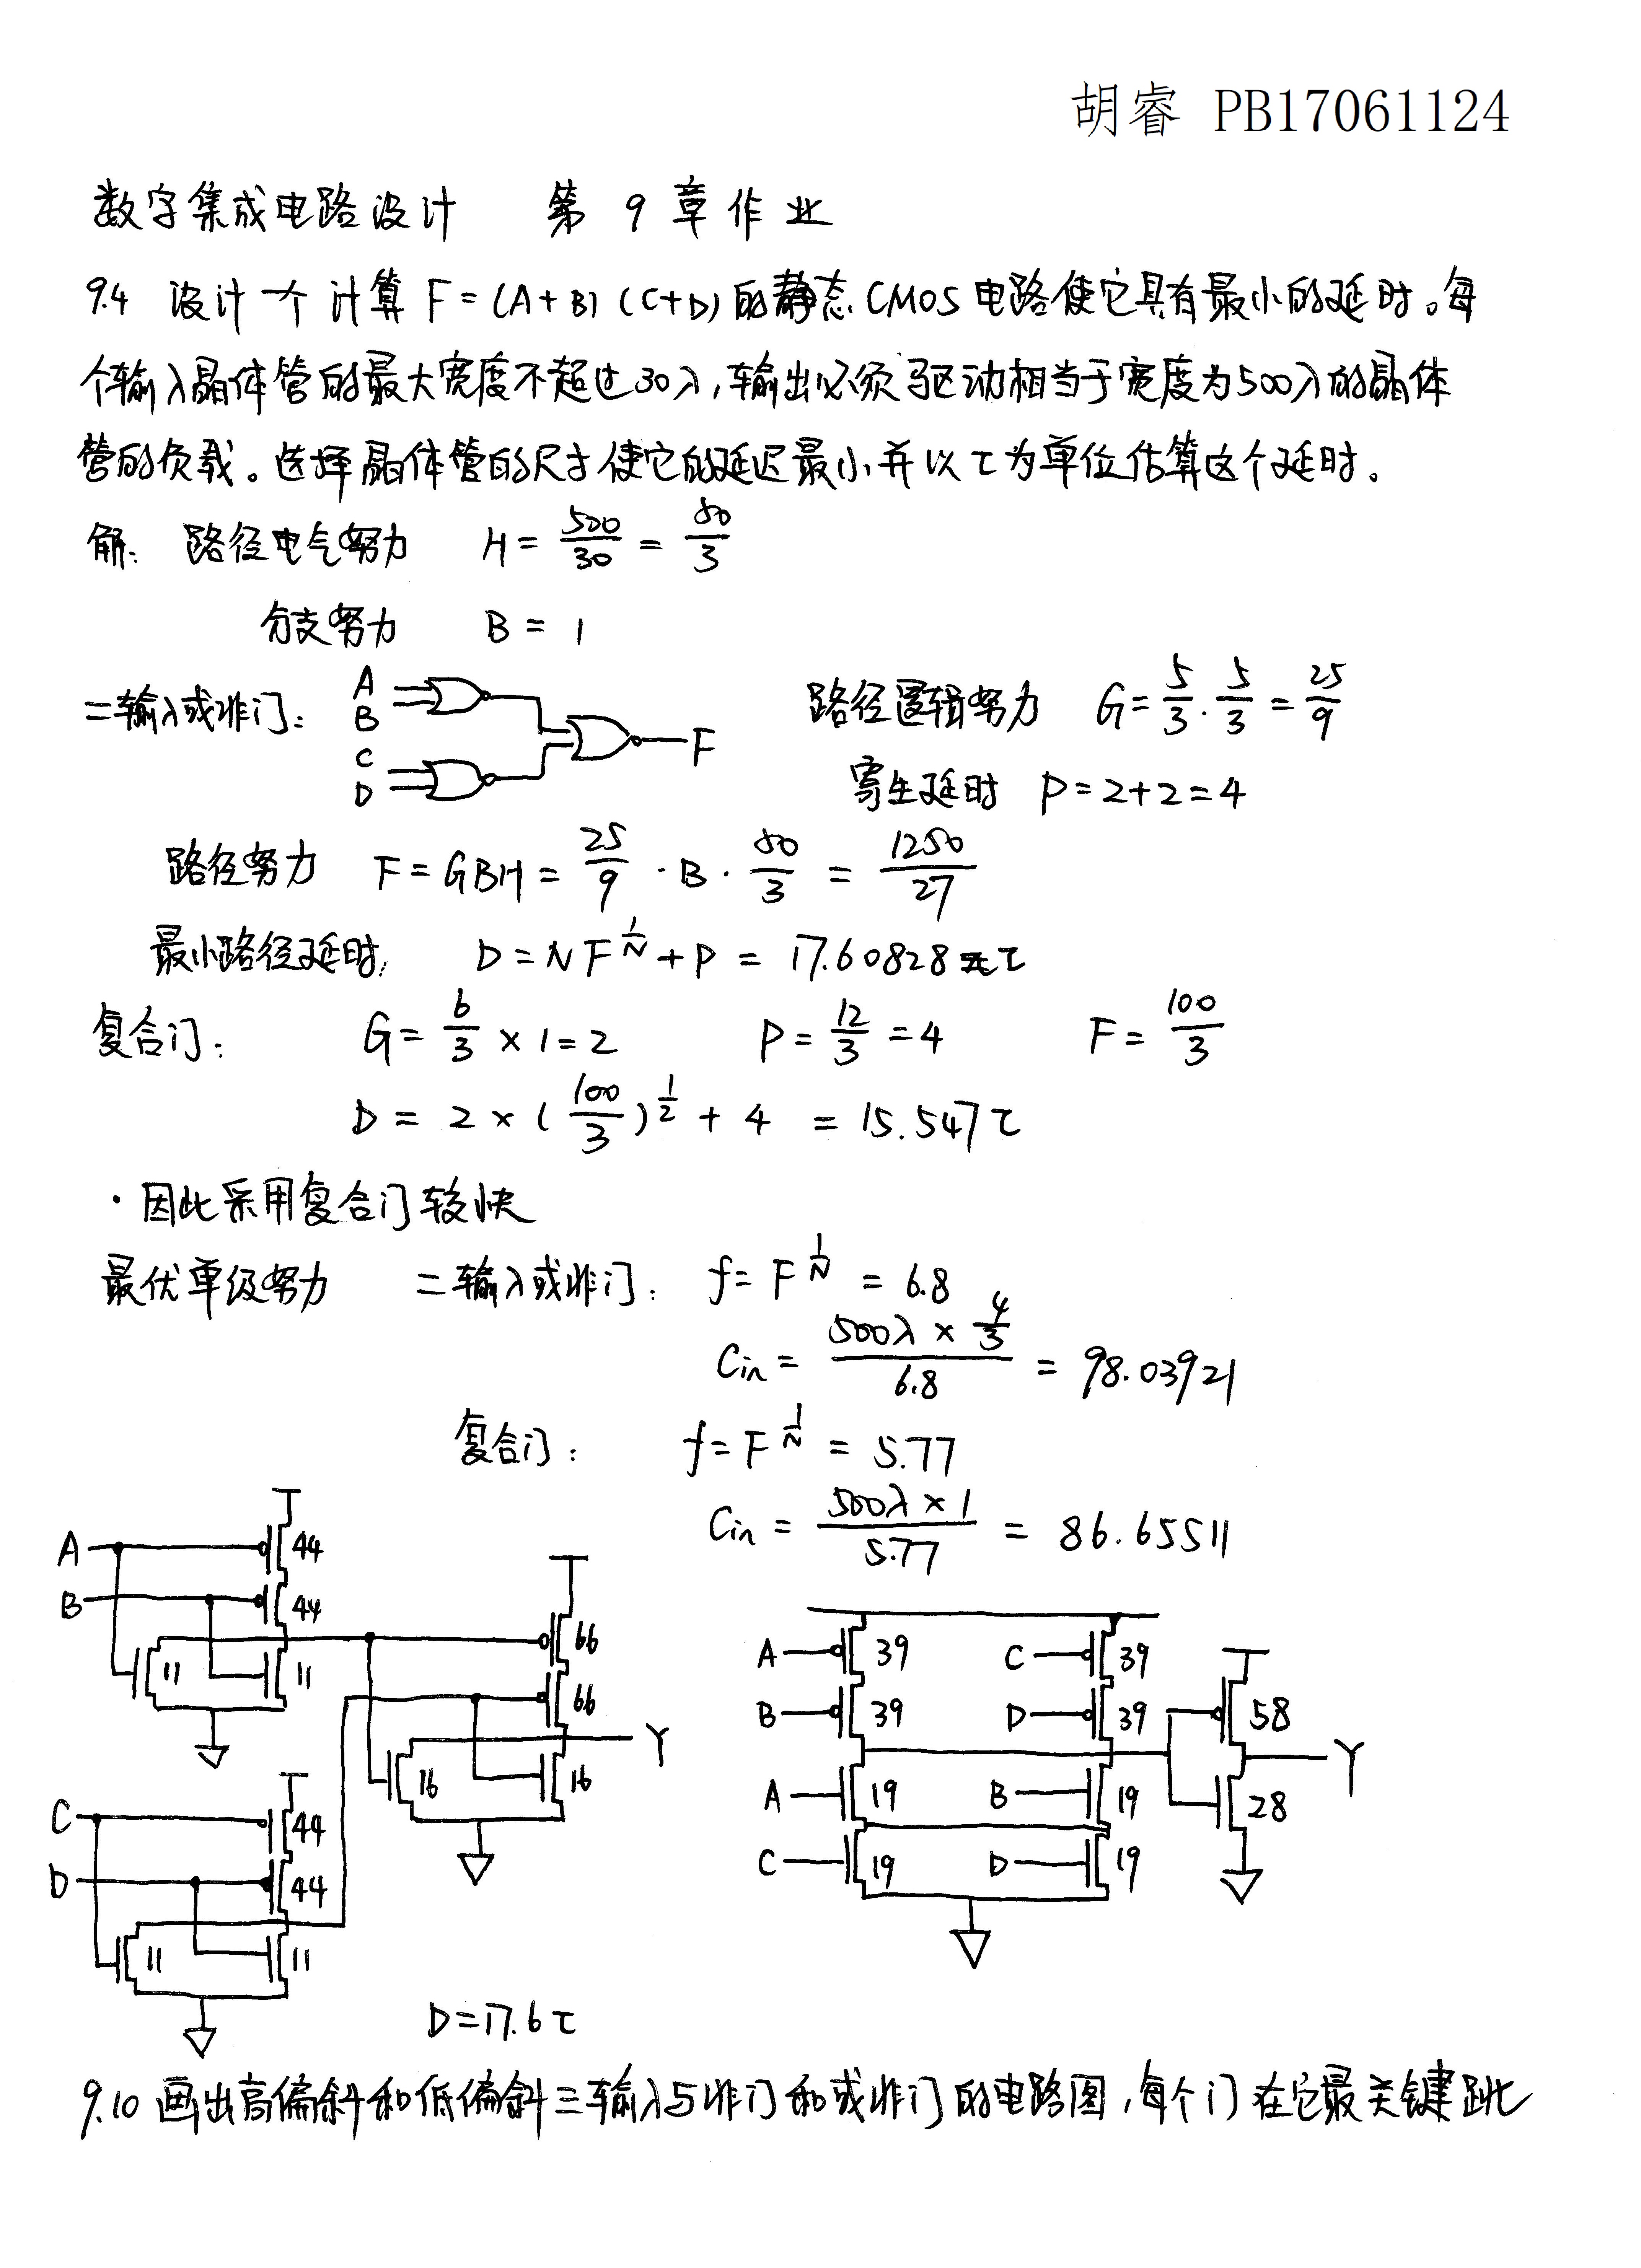 胡睿 PB17061124
数字集成电路设计 第9章作业
9.4 设计一个计算 F=(A+B)(C+D)的静态CMOS电路使它具有最小的延时。每
个输入晶体管的最大宽度不超过30λ,输出必须驱动相当于宽度为500λ的晶体
管的负载。选择晶体管的尺寸使它的延迟最小并以τ为单位估算这个延时。
解: 路径电气努力 H = 500/30 = 50/3
分支努力 B = 1
二输入或非门: A B C D F 路径逻辑努力 G = 5/3 · 5/3 = 25/9
寄生延时 P=2+2=4
路径努力 F = GBH = 25/9 · B · 50/3 = 1250/27
最小路径延时: D = NF^(1/N) + P = 17.60828 τ
复合门: G = 6/3 × 1 = 2 P = 12/3 = 4 F = 100/3
D = 2 × (100/3)^(1/2) + 4 = 15.547τ
· 因此采用复合门较快
最优单级努力 二输入或非门: f = F^(1/N) = 6.8
Cin = 500λ × 4/3 / 6.8 = 98.03921
复合门: f = F^(1/N) = 5.77
Cin = 500λ × 1 / 5.77 = 86.65511
A 44
B 44
11 11
66
66
16 16 Y
C 44
D 44
11 11
A 39 C 39
B 39 D 39
A 19 B 19
C 19 D 19
58
28 Y
D=17.6τ
9.10 画出高偏斜和低偏斜三输入与非门和或非门的电路图,每个门在它最关键跳